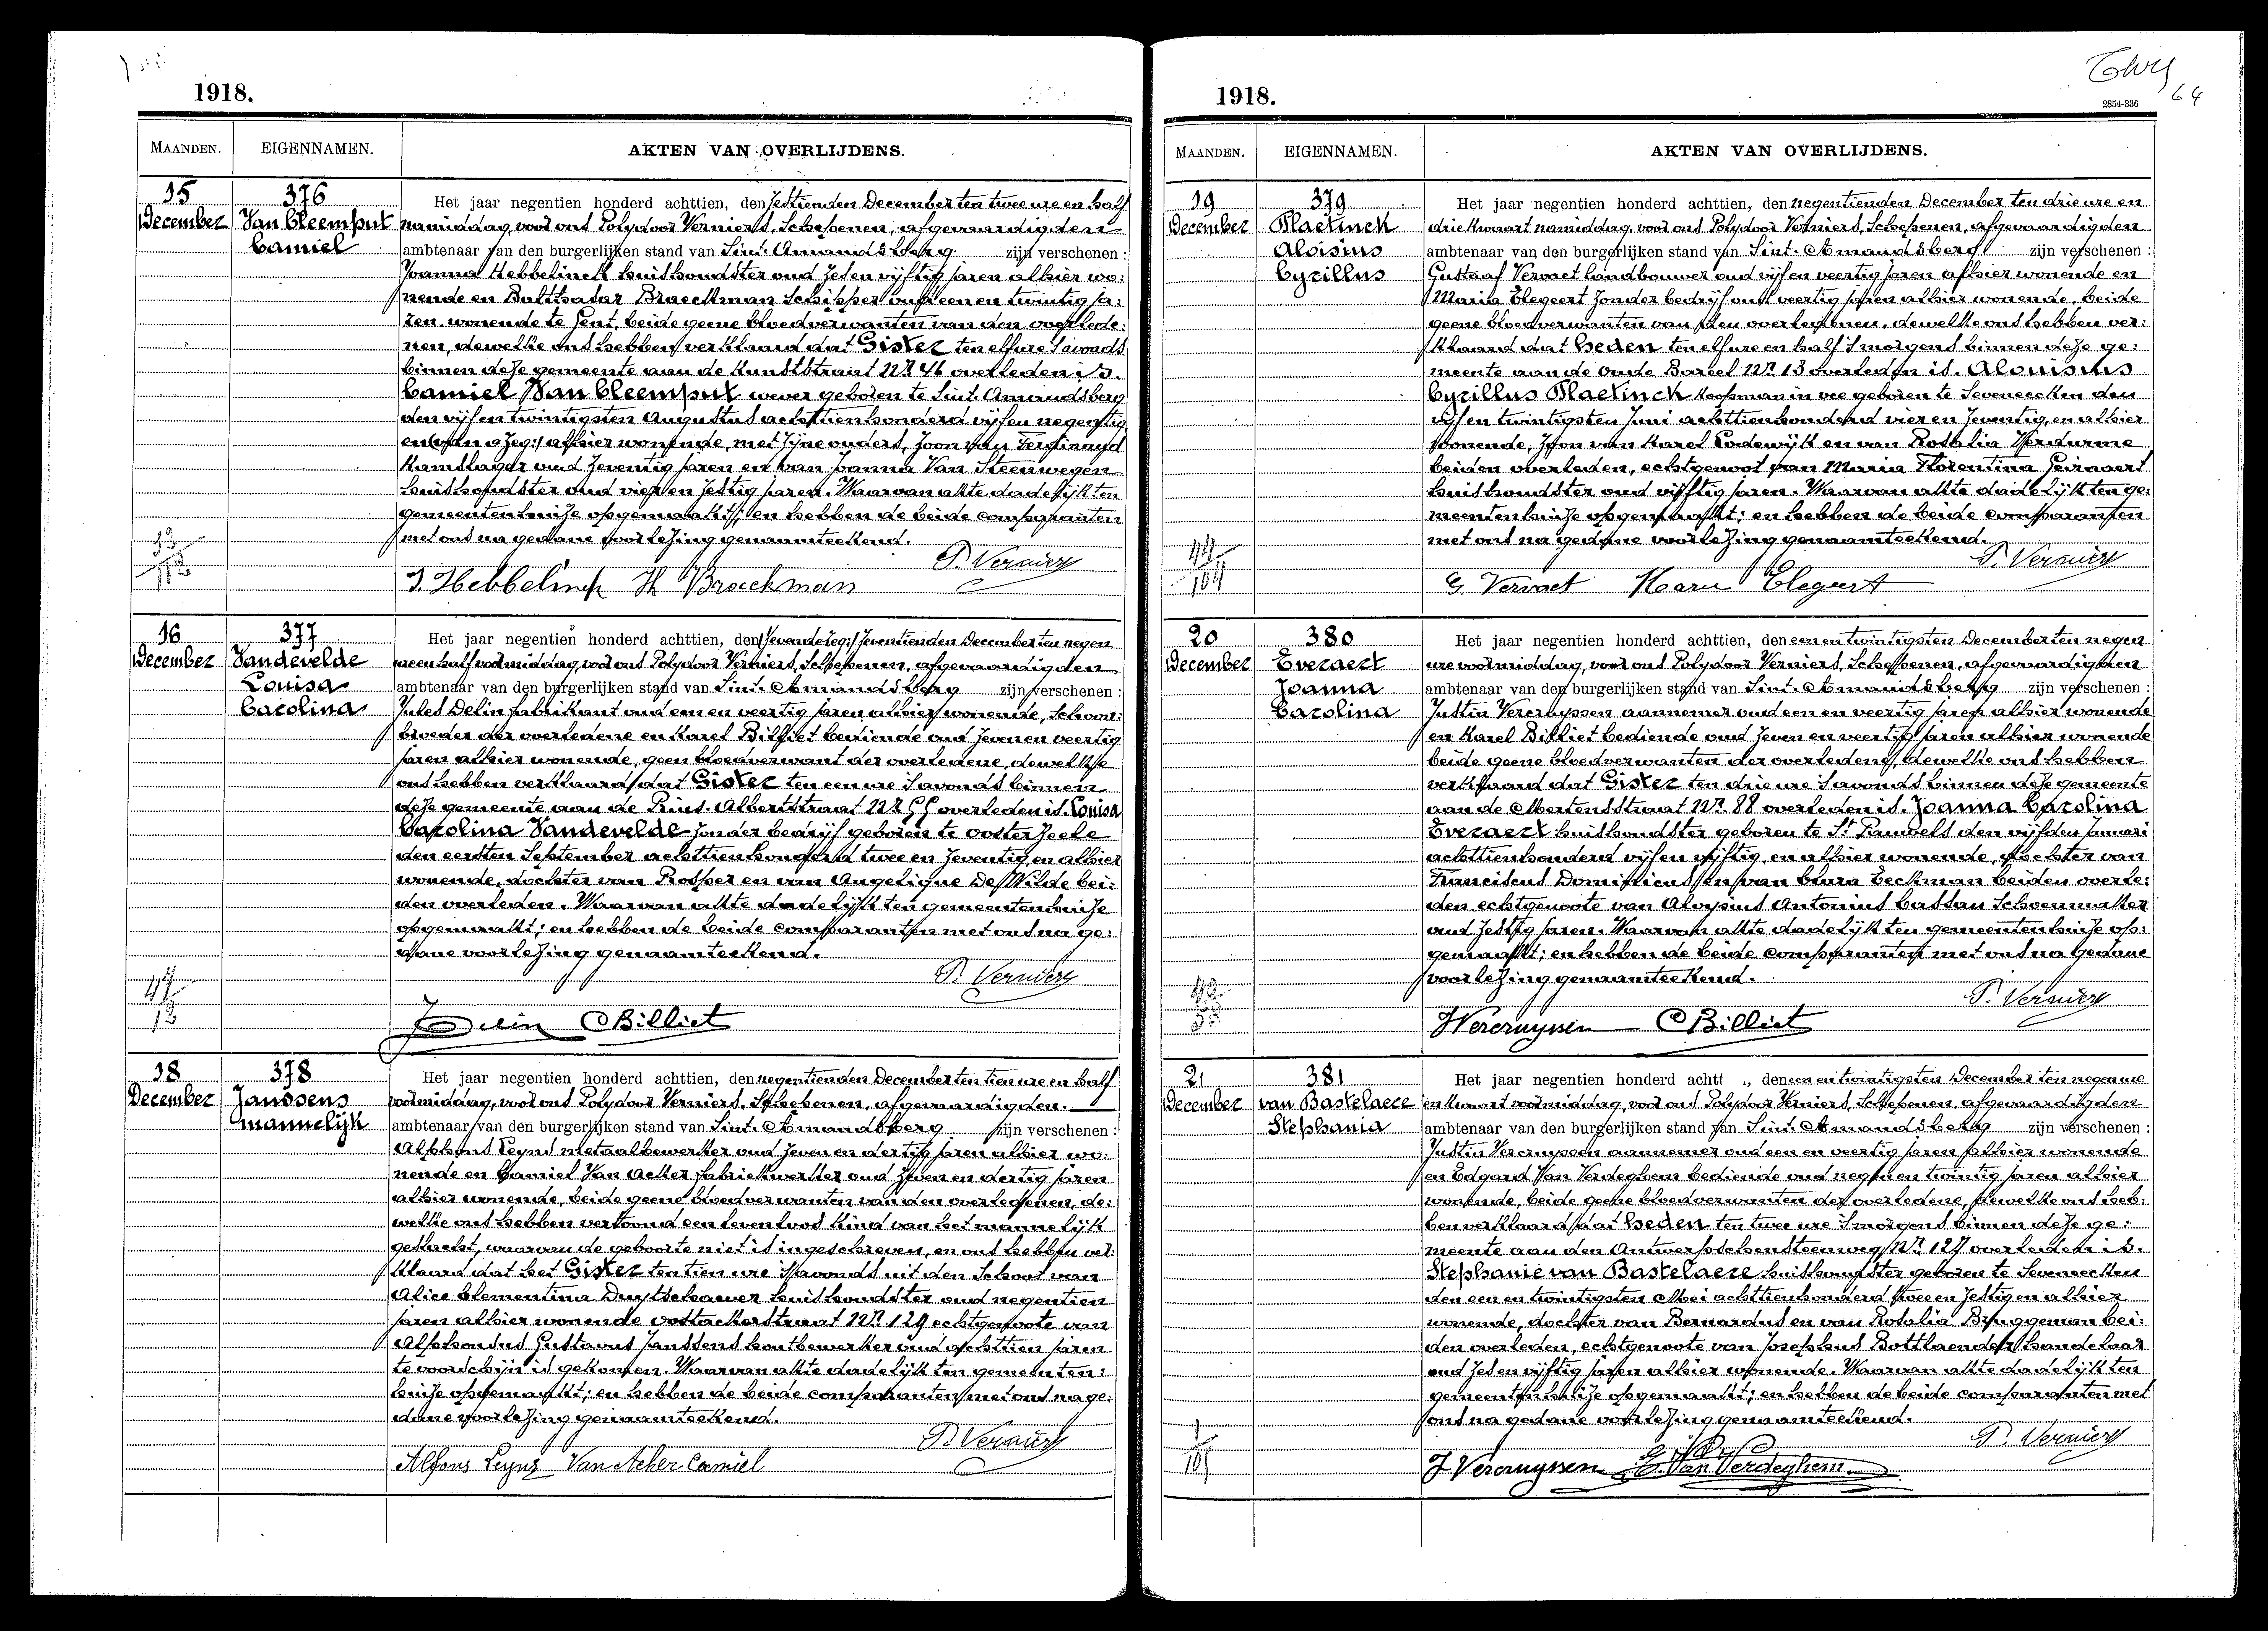 1918.
MAANDEN. EIGENNAMEN. AKTEN VAN OVERLIJDENS.
15 December
376
Van Cleemput
Camiel
Het jaar negentien honderd achttien, den zestienden December ten twee ure en half
namiddag, voor ons Polydoor Verniers, Schepenen, afgevaardigden
ambtenaar van den burgerlijken stand van Sint-Amandsberg zijn verschenen :
Joanna Hebbelinck huishoudster oud zes en vijftig jaren alhier wo:
nende en Balthasar Braeckman Schipper oud een en twintig ja:
ren wonende te Gent, beide geene bloedverwanten van den overlede:
nen, dewelke ons hebben verklaard dat Gister ten elf ure s'avonds
binnen deze gemeente aan de Kunststraat Nr 46 overleden is.
Camiel Van Cleemput wever geboren te Sint-Amandsberg
den vijf en twintigsten Augustus achttienhonderd vijf en negentig
en alhier wonende, met zijne ouders, zoon van Ferdinand
oud zeventig jaren en van Joanna Van Steenwegen
huishoudster oud vier en zestig jaren. Waarvan akte dadelijk ten
gemeentenhuize opgemaakt; en hebben de beide comparanten
met ons na gedane voorlezing genaamteekend.
P. Verniers
J. Hebbelinck Braeckman
16 December
377
Vandevelde
Louisa
Carolina
Het jaar negentien honderd achttien, den zevenden December ten negen
ure en half voormiddag, voor ons Polydoor Verniers, Schepenen, afgevaardigden
ambtenaar van den burgerlijken stand van Sint-Amandsberg zijn verschenen :
Jules Delin fabrikant oud een en veertig jaren alhier wonende, schoon:
broeder der overledene en Karel Billiet bediende oud zeven en veertig
jaren alhier wonende, geen bloedverwant der overledene, dewelke
ons hebben verklaard dat Gister ten een ure s'avonds binnen
deze gemeente aan de Prins Albertstraat Nr 55 overleden is. Louisa
Carolina Vandevelde zonder bedrijf geboren te Oosterzeele
den eersten September achttienhonderd twee en zeventig, en alhier
wonende, dochter van Prosper en van Angelique De Wilde bei:
den overleden. Waarvan akte dadelijk ten gemeentenhuize
opgemaakt; en hebben de beide comparanten met ons na ge:
dane voorlezing genaamteekend.
P. Verniers
J Delin CBilliet
18 December
378
Janssens
mannelijk
Het jaar negentien honderd achttien, den negentienden December ten tien ure en half
voormiddag, voor ons Polydoor Verniers, Schepenen, afgevaardigden.
ambtenaar van den burgerlijken stand van Sint-Amandsberg zijn verschenen :
Alphons Leyns metaalbewerker oud zeven en dertig jaren alhier wo:
nende en Camiel Van Acker fabriekwerker oud zeven en dertig jaren
alhier wonende, beide geene bloedverwanten van den overledenen, de:
welke ons hebben vertoond een levenloos kind van het mannelijk
geslacht, waarvan de geboorte niet is ingeschreven, en ons hebben ver:
klaard dat het Gister ten tien ure s'avonds uit den schoot van
Alice Clementina Duytschaever huishoudster oud negentien
jaren alhier wonende Oostackerstraat Nr 129 echtgenoote van
Alphonsus Gustavus Janssens houtbewerker oud achttien jaren
te voorschijn is gekomen. Waarvan akte dadelijk ten gemeenten:
huize opgemaakt; en hebben de beide comparanten met ons na ge:
dane voorlezing genaamteekend.
P. Verniers
Alfons Leyns Van Acker Camiel
1918.
2854-336
64
MAANDEN. EIGENNAMEN. AKTEN VAN OVERLIJDENS.
19 December
379
Plaetinck
Aloisius
Cyrillus
Het jaar negentien honderd achttien, den negentienden December ten drie ure en
drie kwaart namiddag, voor ons Polydoor Verniers, Schepenen, afgevaardigden
ambtenaar van den burgerlijken stand van Sint-Amandsberg zijn verschenen :
Gustaaf Vervaet landbouwer oud vijf en veertig jaren alhier wonende en
Maria Elegeert zonder bedrijf oud veertig jaren alhier wonende, beide
geene bloedverwanten van den overledenen, dewelke ons hebben ver:
klaard dat heden ten elf ure en half s'morgens binnen deze ge:
meente aan de Oude Bareel Nr 13 overleden is. Aloisius
Cyrillus Plaetinck koopman in vee geboren te Seveneecken den
vijf en twintigsten Juni achttienhonderd vier en zeventig, en alhier
wonende, zoon van Karel Lodewijk en van Rosalia Verdurme
beiden overleden, echtgenoot van Maria Florentina Geirnaert
huishoudster oud vijftig jaren. Waarvan akte dadelijk ten ge:
meentenhuize opgemaakt; en hebben de beide comparanten
met ons na gedane voorlezing genaamteekend.
P. Verniers
G Vervaet Maria Elegeert
20 December
380
Everaert
Joanna
Carolina
Het jaar negentien honderd achttien, den een en twintigsten December ten negen
ure voormiddag, voor ons Polydoor Verniers, Schepenen, afgevaardigden
ambtenaar van den burgerlijken stand van Sint-Amandsberg zijn verschenen :
Justin Vercruyssen aannemer oud een en veertig jaren alhier wonende
en Karel Billiet bediende oud zeven en veertig jaren alhier wonende
beide geene bloedverwanten der overledene, dewelke ons hebben
verklaard dat Gister ten drie ure s'avonds binnen deze gemeente
aan de Mertensstraat Nr 88 overleden is. Joanna Carolina
Everaert huishoudster geboren te St Pauwels den vijfden Januari
achttienhonderd vijf en vijftig, en alhier wonende, dochter van
Franciscus Dominicus en van Clara Beckman beiden overle:
den echtgenoote van Aloysius Antonius Cassau Schoenmaker
oud zestig jaren. Waarvan akte dadelijk ten gemeentenhuize op:
gemaakt; en hebben de beide comparanten met ons na gedane
voorlezing genaamteekend.
P. Verniers
JVercruyssen CBilliet
21 December
381
van Bastelaere
Stephania
Het jaar negentien honderd achtt , den een en twintigsten December ten negen ure
en kwaart voormiddag, voor ons Polydoor Verniers, Schepenen, afgevaardigden
ambtenaar van den burgerlijken stand van Sint-Amandsberg zijn verschenen :
Justin Vercruyssen aannemer oud een en veertig jaren alhier wonende
en Edgard Van Verdeghem bediende oud negen en twintig jaren alhier
wonende, beide geene bloedverwanten der overledene, dewelke ons heb:
ben verklaard dat heden ten twee ure s'morgens binnen deze ge:
meente aan den Antwerpschensteenweg Nr 127 overleden is.
Stephanie van Bastelaere huishoudster geboren te Seveneecken
den een en twintigsten Mei achttienhonderd twee en zestig en alhier
wonende, dochter van Bernardus en van Rosalia Bruggeman bei:
den overleden, echtgenoote van Josephus Bottlaender handelaar
oud zes en vijftig jaren alhier wonende. Waarvan akte dadelijk ten
gemeentenhuize opgemaakt; en hebben de beide comparanten met
ons na gedane voorlezing genaamteekend.
P. Verniers
J Vercruyssen E. Van Verdeghem